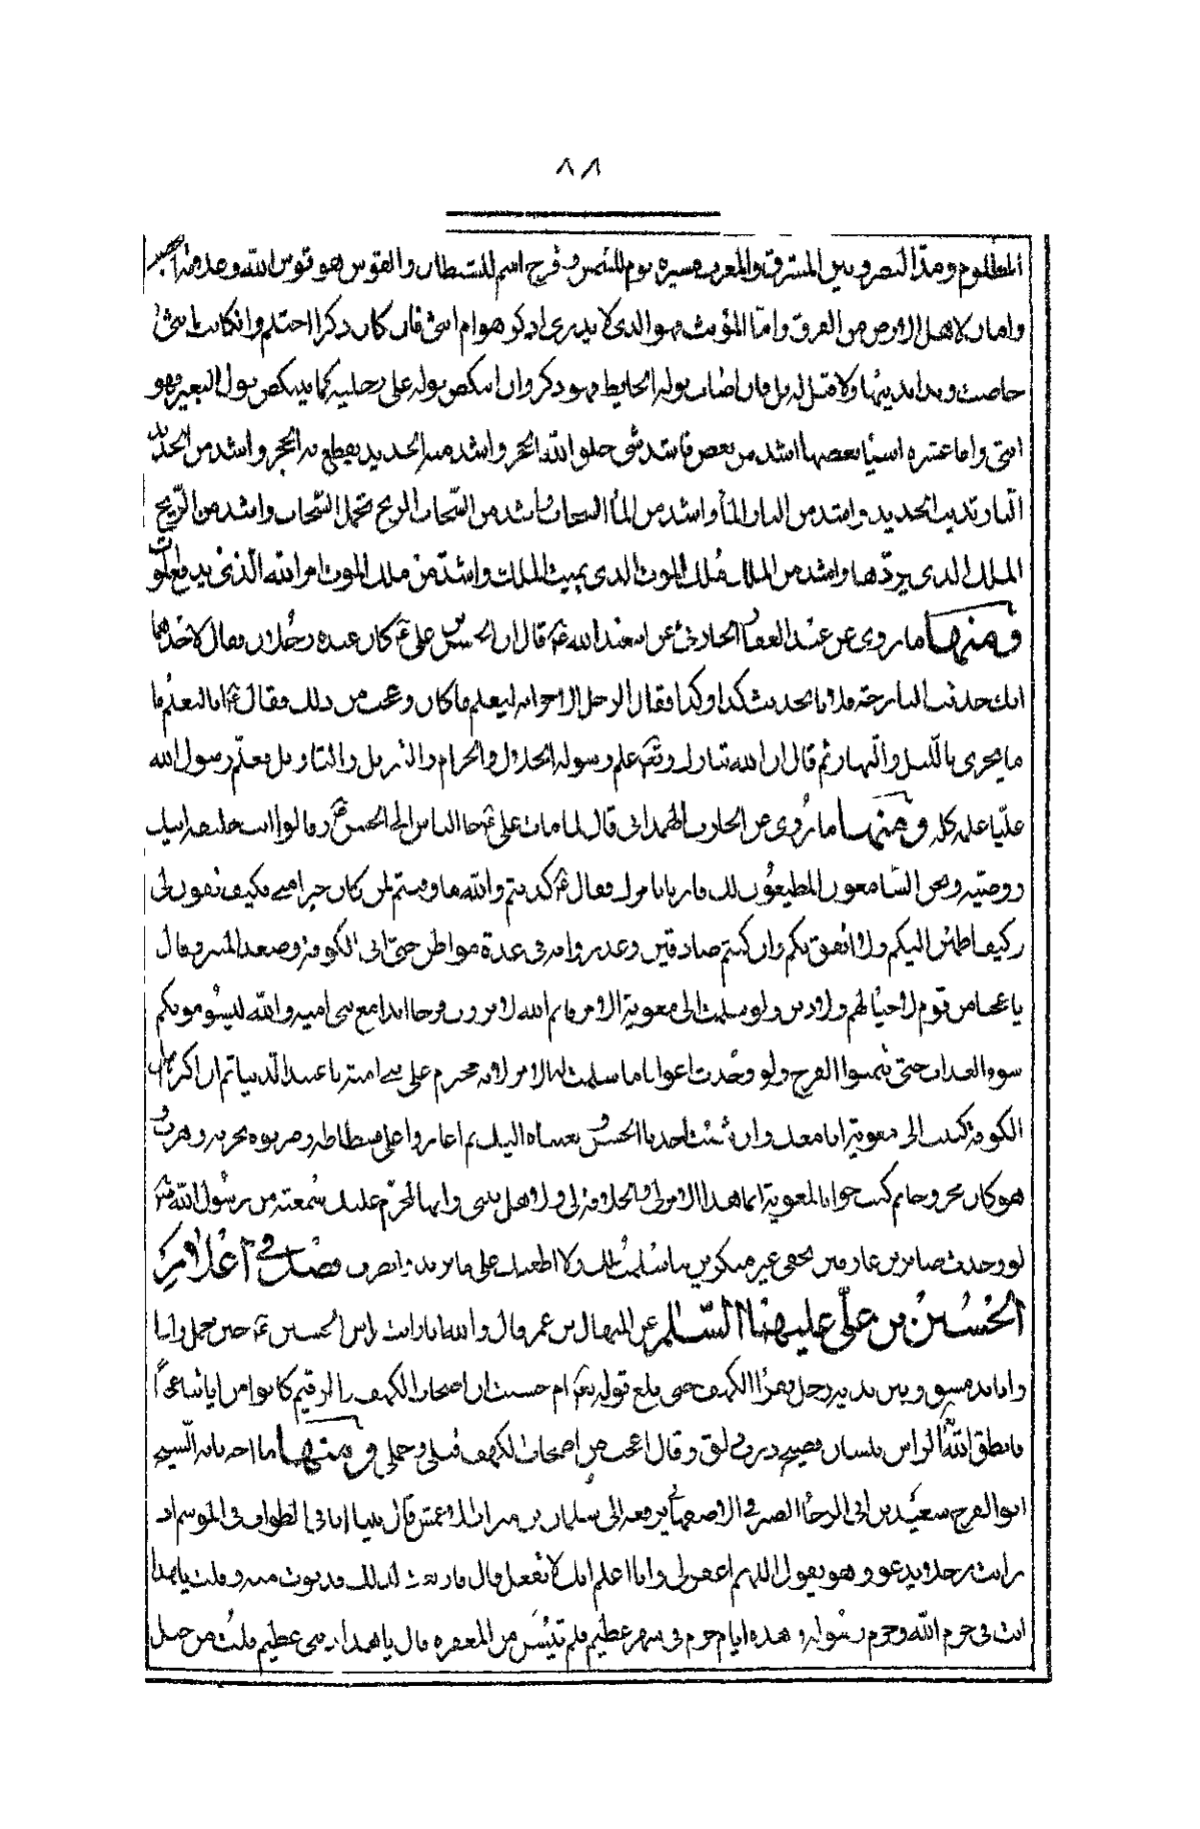 ٨٨
المظلوم ومدّ البصر وبين المشرق والمغرب مسيرة يوم للشمس وقزح اسم للشيطان والقوس هو قوس الله وعلامة الخصب
وامان لاهل الارض من الغرق وامّا المؤنث فهو الذى لا يدرى اذكر هو ام انثى فان كان ذكرا احتلم وان كانت انثى
حاضت وبدا ثديها والا قيل له بل فان اصاب بوله الحايط فهو ذكر وان انتكص بوله على رجليه كما ينتكص بول البعير فهو
انثى واما عشرة اشيأ بعضها اشد من بعض فاشد شى خلق الله الحجر واشد منه الحديد يقطع به الحجر واشد من الحديد
النار تذيب الحديد واشد من النار المأ واشد من المأ السحاب واشد من السّحاب الريح تحمل السّحاب واشد من الرّيح
الملك الذى يردّها واشد من الملك ملك الموت الذى يميت الملك واشدّ من ملك الموت امر الله الذى يدفع الموت
ومنها ما روى عن عبد الغفار الحارثى عن ابى عبد الله ع قال ان الحسن بن على ع كان عنده رجلان فقال لاحدهما
انك حدثت البارحة فلانا بحديث كذا وكذا فقال الرجل الاخر انه ليعلم ما كان وعجب من ذلك فقال ع انا لنعلم ما
ما يجرى بالليل والنهار ثم قال ان الله تبارك وتع علم رسوله الحلال والحرام والتنزيل والتاويل فعلّم رسول الله
عليّا علمه كله ومنها ما روى عن الحارث الهمدانى قال لما مات على ع جا الناس الى الحسن ع وقالوا انت خليفة ابيك
ووصيّه ونحن السّامعون المطيعون لك فامرنا بامرك فقال ع كذبتم والله ما وفيتم لمن كان خيرا منى فكيف تفون لى
وكيف اطمئن اليكم ولا اثق بكم وان كنتم صادقين
يا عجبا من قوم لا حيأ لهم ولا دين ولو سلمت الى معوية الامر فايم الله لا ترون فرحا ابدا مع بنى امية والله ليسومونكم
سوء العذاب حتى تتمنوا الفرج ولو وجدت اعوانا ما سلمت له الامر لانه محرم على بنى امية
الكوفة كتبت الى معوية انا معك وان شئت اخذنا الحسن وبعثناه اليك ثم اغاروا على فسطاطه وضربوه بحربة
كتب جوابا لمعوية انما هذا الامر لى والخلافة لى ولاهل بيتى وانها لمحرّمة عليك سمعته من رسول الله ص
لو وجدت صابرين عارفين بحقى غير منكرين ما سلمت لك ولا اعطيتك على ما تريد وانصرف فصل فى اعلام
الحسين بن علىّ عليهما السّلم عن المنهال بن عمر وقال والله انا رايت راس الحسين ع حين حمل وانا
وانا بدمشق وبين يديه رجل يقرأ الكهف حتى بلغ قوله تع ام حسبت ان اصحاب الكهف والرقيم كانوا من اياتنا عجبا
فانطق الله الراس بلسان فصيح ذرب ذلق وقال اعجب من اصحاب الكهف قتلى وحملى ومنها ما اخبرنا به الشيخ
ابو الفرج سعيد بن ابى الرجا الصيرفى الاصفهانى يرفعه الى سليمان بن مهران الاعمش قال بينا انا فى الطواف فى الموسم اذ
رايت رجلا يدعو وهو يقول اللهم اغفر لى وانا اعلم انك لا تفعل قال فارتعدت لذلك فدنوت منه وقلت يا هذا
انت فى حرم الله وحرم رسوله وهذه ايام حرم فى شهر عظيم فلم تيئس من المغفرة قال يا هذا ذنبى عظيم قلت من جبل